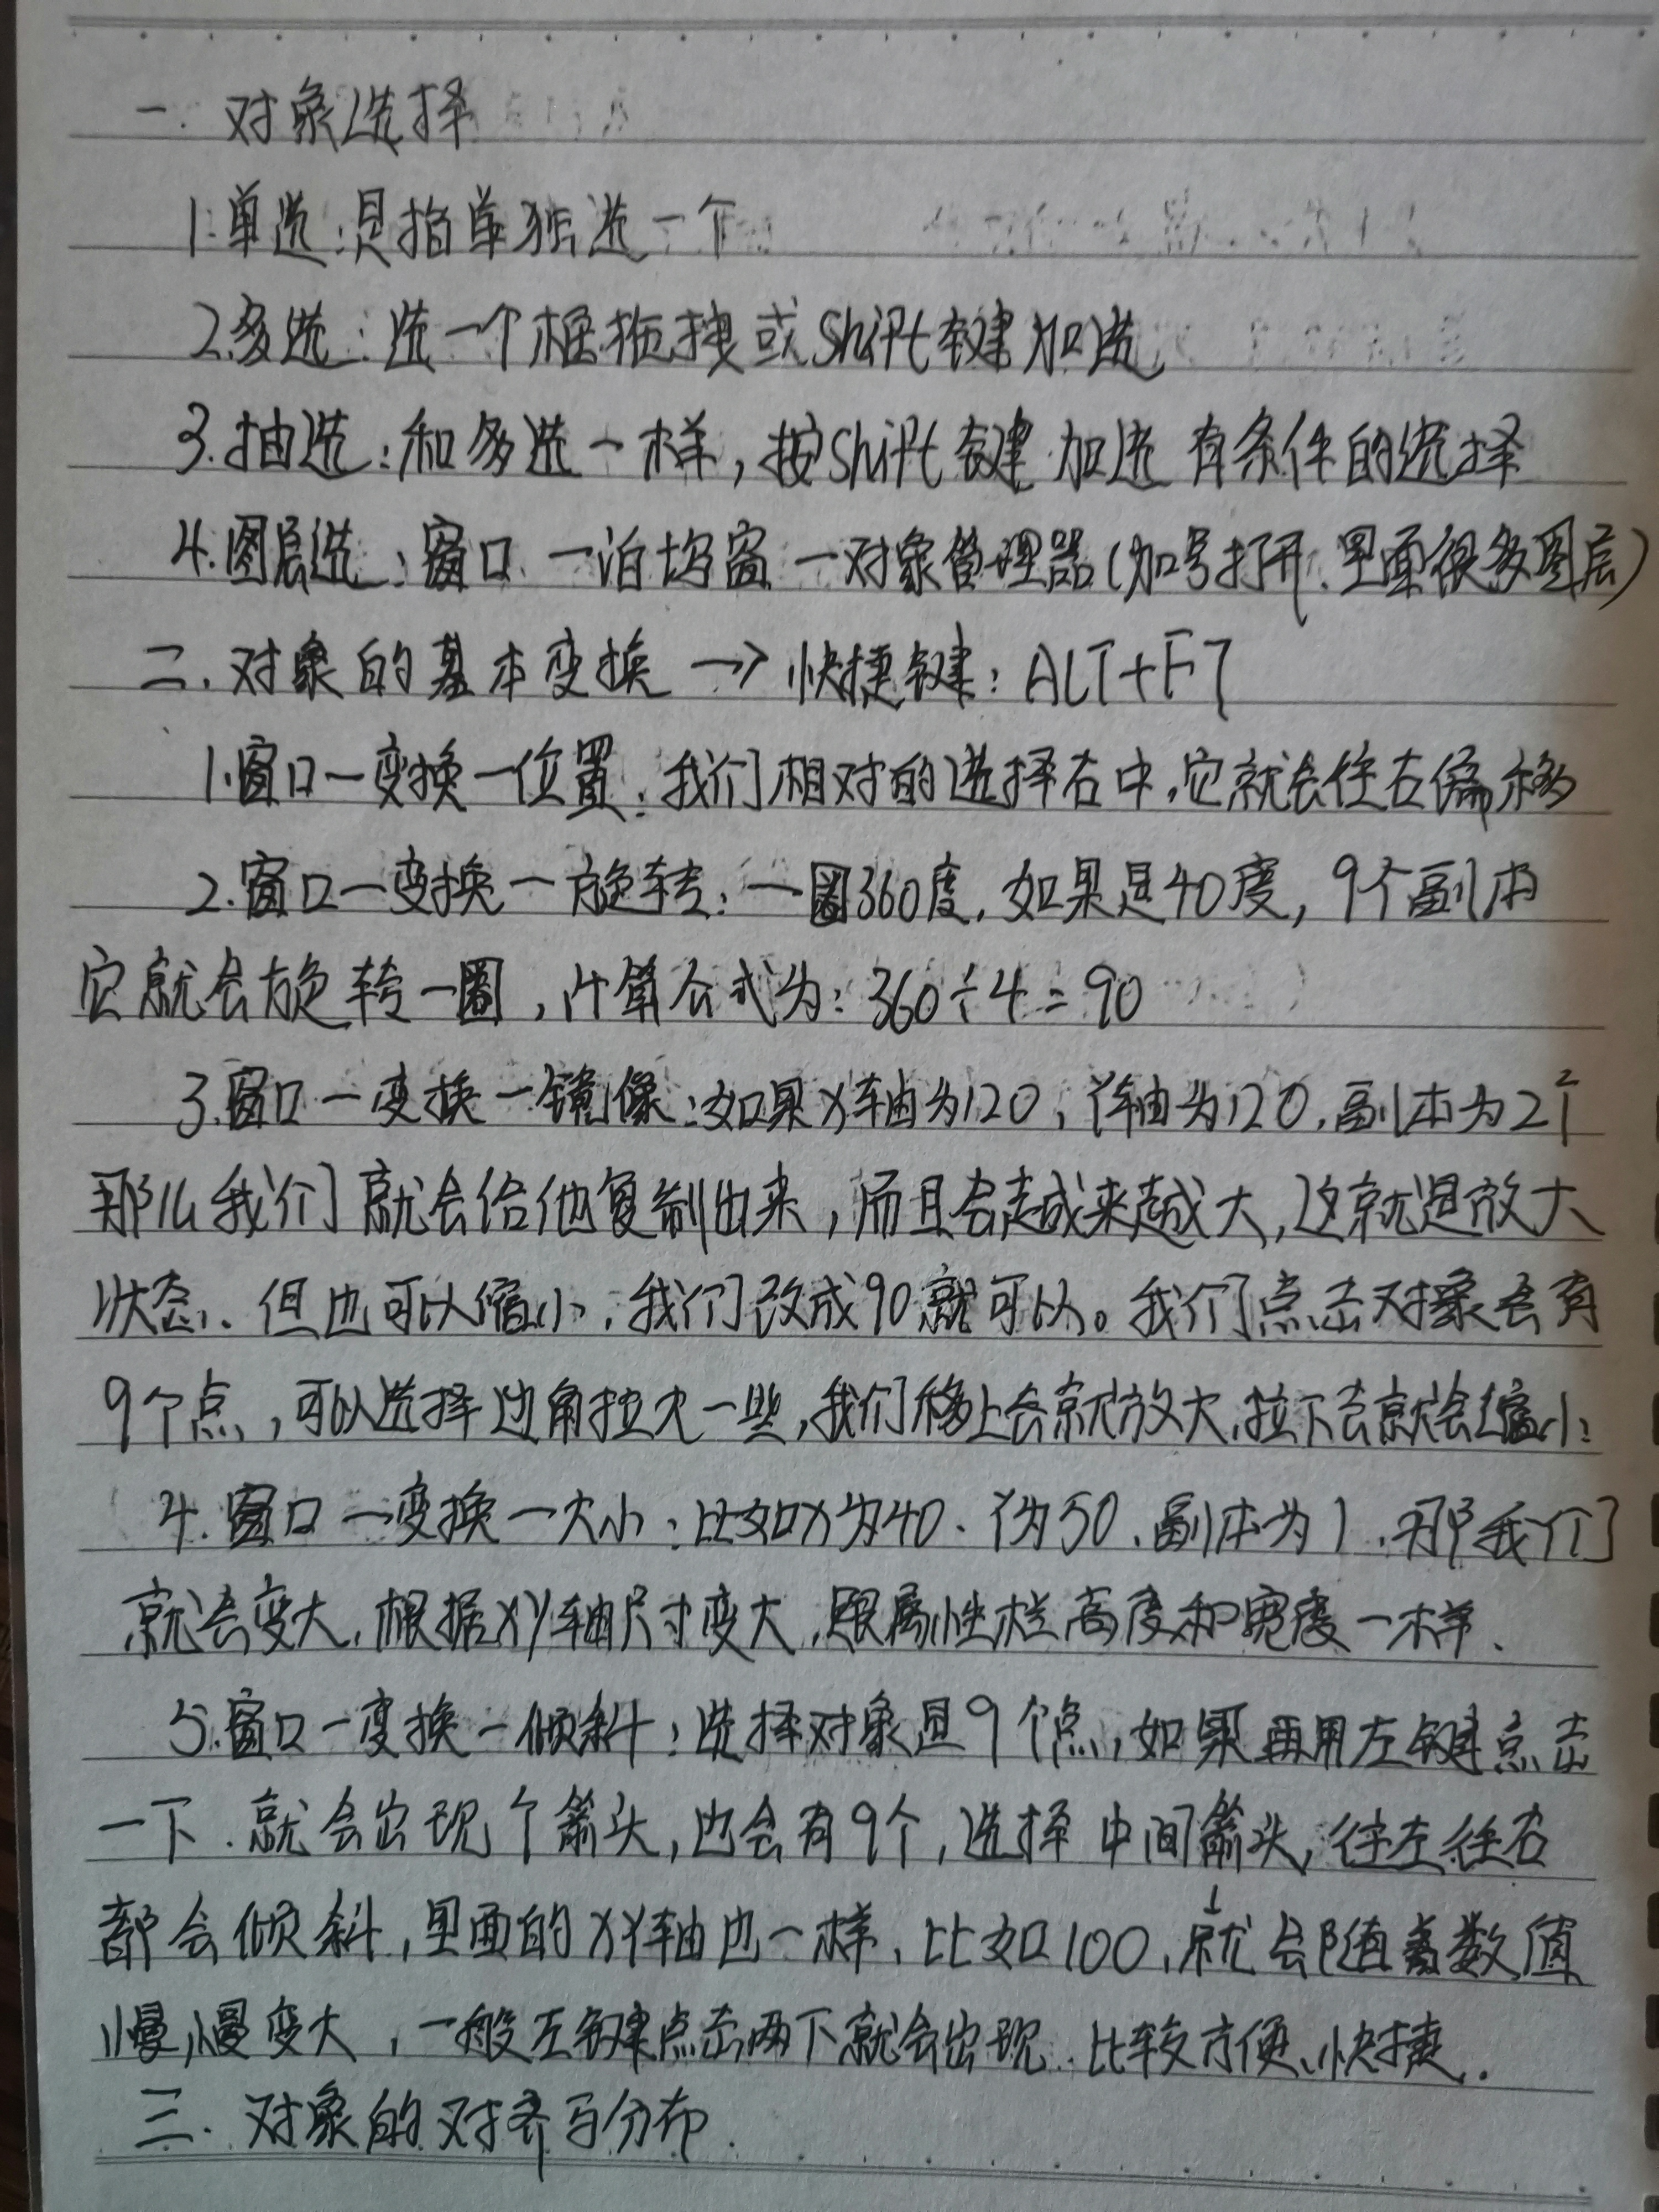 一. 对象选择
1.单选:是指单独选一个
2.多选:选一个框拖拽或Shift键加选
3.抽选:和多选一样,按Shift键加选 有条件的选择
4.图层选:窗口一泊坞窗一对象管理器(加号打开.里面很多图层)
二.对象的基本变换→快捷键:ALT+F7
1.窗口一变换一位置:我们相对的选择右中,它就会往右偏移
2.窗口一变换一旋转:一圈360度,如果是40度,9个副本
它就会旋转一圈,计算公式为:360÷4=90
3.窗口一变换一镜像:如果X轴为120,Y轴为120,副本为2个
那么我们就会给他复制出来,而且会越来越大,这就是放大
状态、但也可以缩小,我们改成90就可以。我们点击对象会有
9个点,可以选择边角拉大一些,我们移上去就放大,拉下去就会缩小:
4.窗口一变换一大小:比如X为40、Y为50、副本为1、那我们
就会变大,根据XY轴尺寸变大,跟属性栏高度和宽度一样、
5.窗口一变换一倾斜:选择对象是9个点,如果再用左键点击
一下.就会出现个箭头,也会有9个,选择中间箭头,往左往右
都会倾斜,里面的XY轴也一样,比如100,就会随着数值
慢慢变大,一般左键点击两下就会出现.比较方便、快捷.
三.对象的对齐与分布.